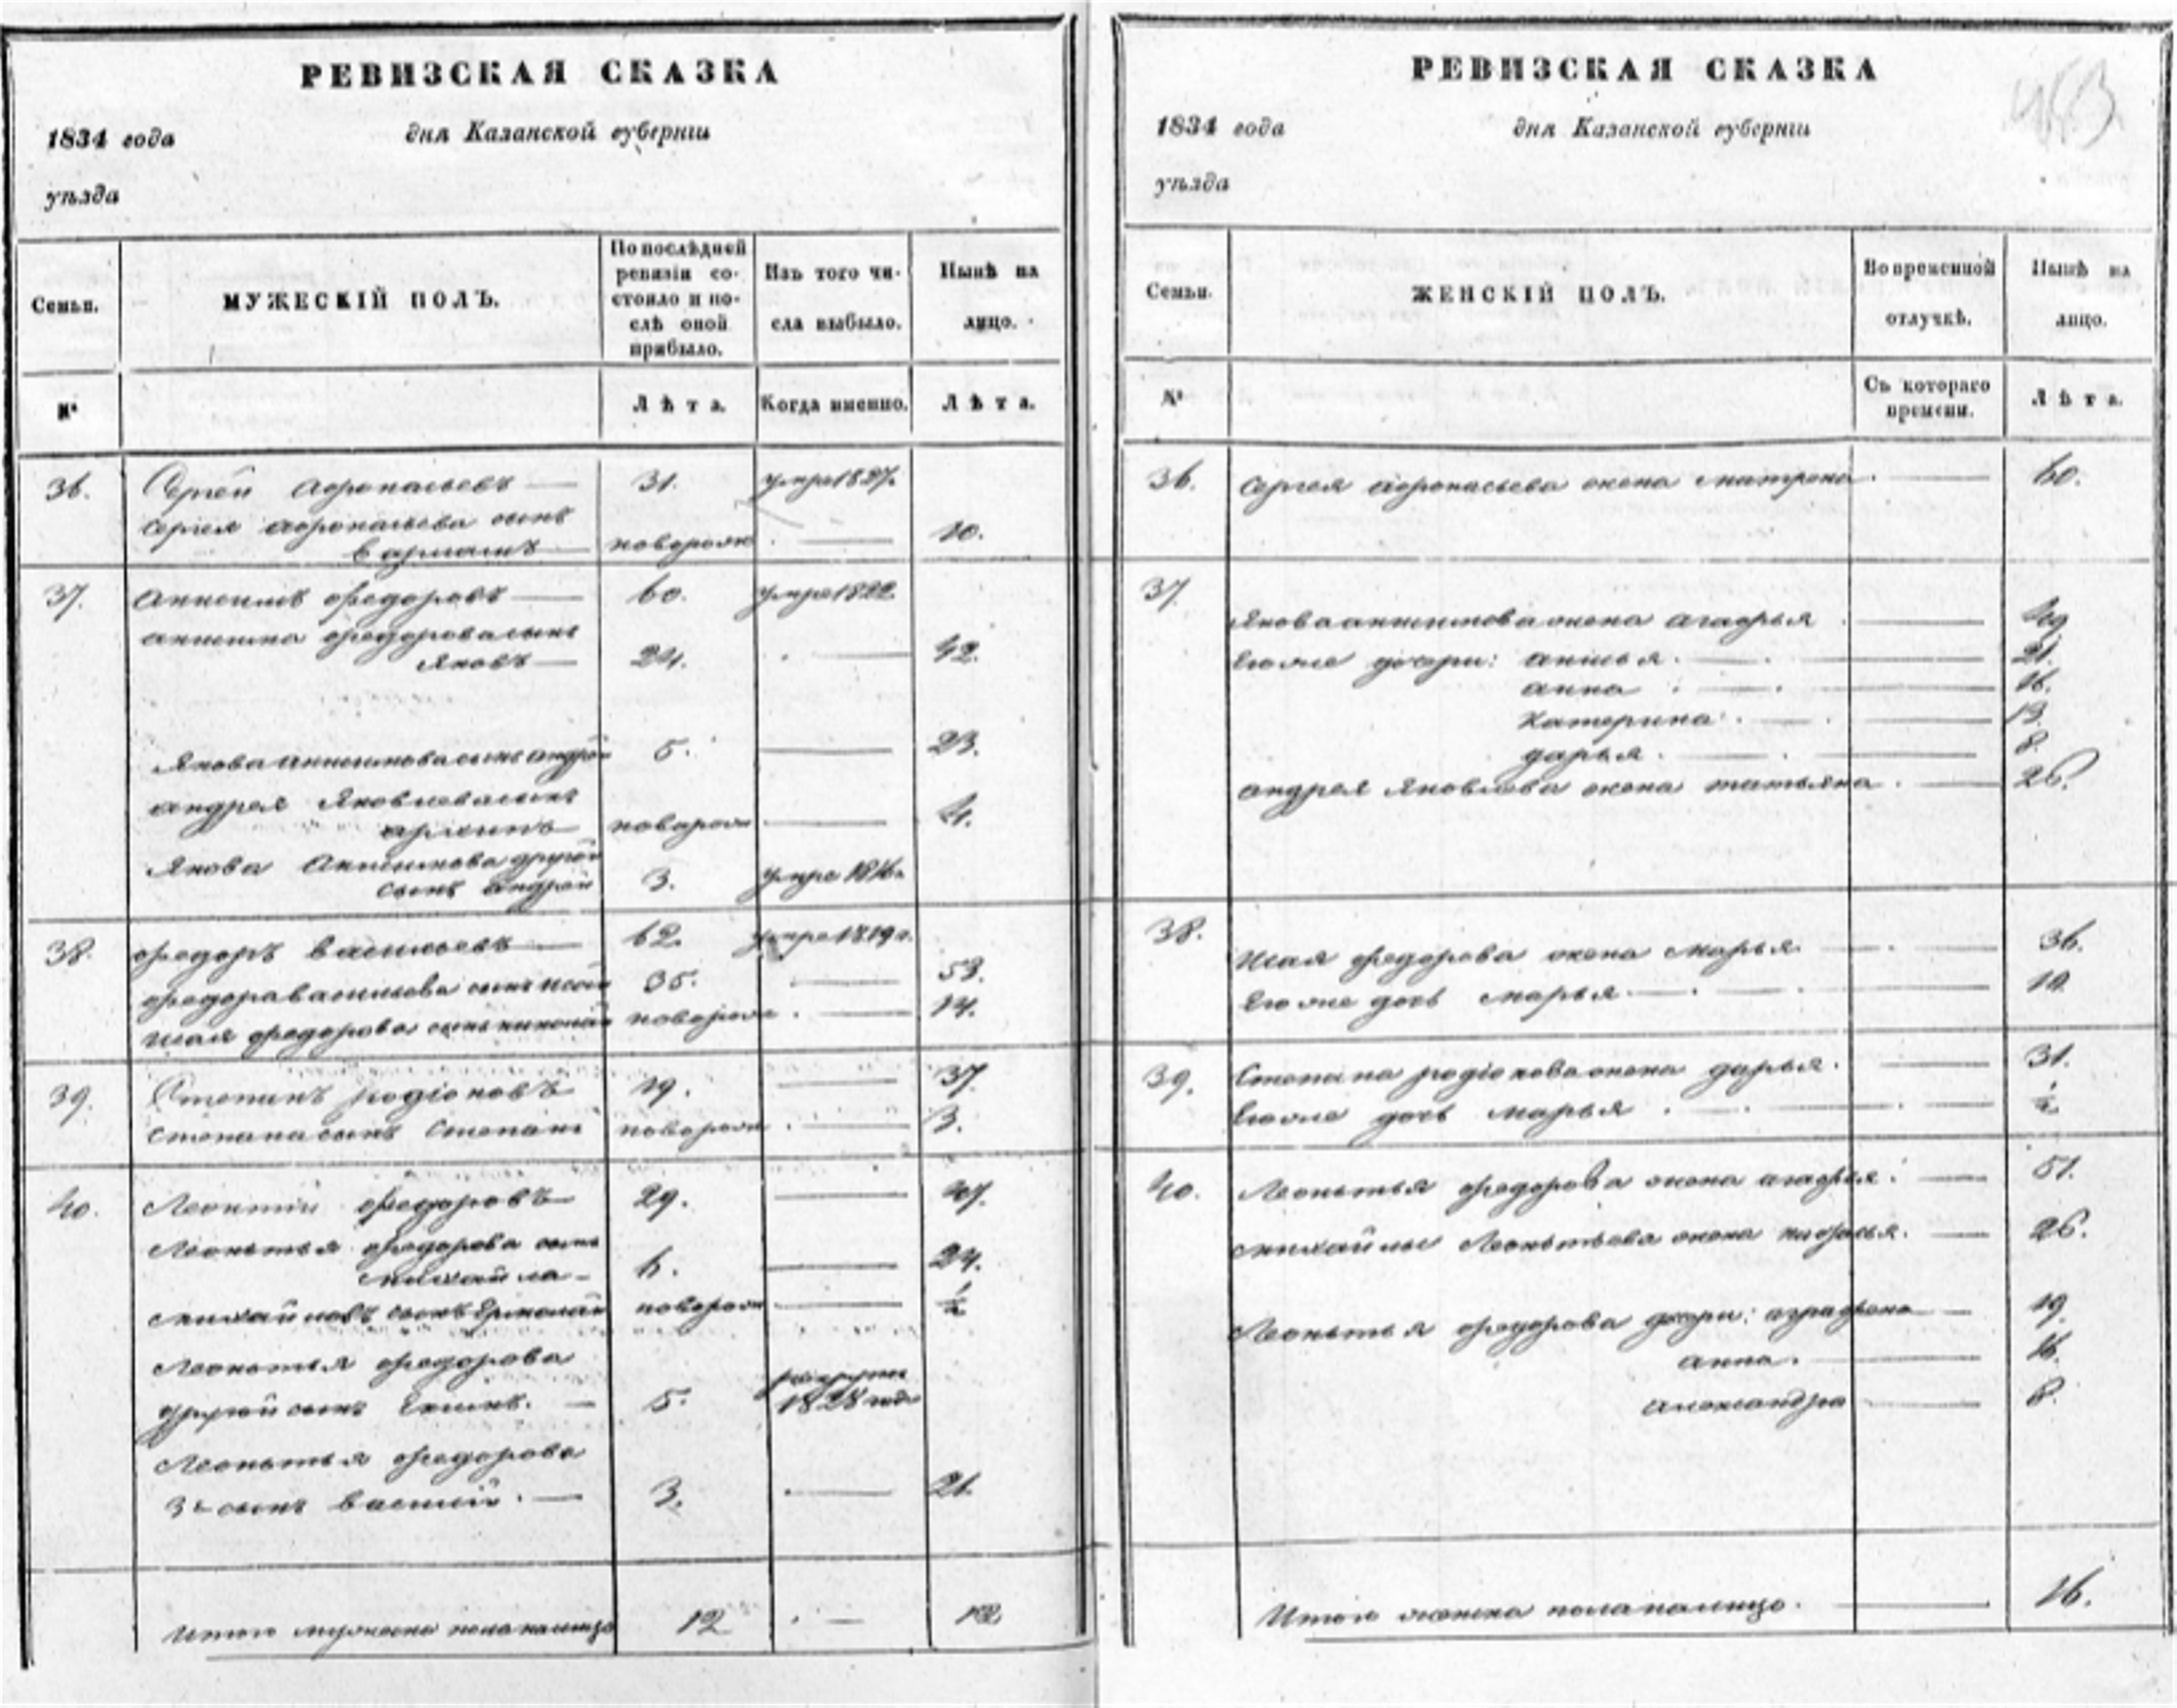 РЕВИЗСКАЯ СКАЗКА
1834 года дня Казанской губернiи
уѣзда
Семьи. МУЖЕСКІЙ ПОЛЪ. По послѣдней ревизіи состояло и послѣ оной прибыло. Изъ того числа выбыло. Нынѣ на лицо.
№ Лѣта. Когда именно. Лѣта.
36. Сергей Афонасьевъ — 31. умре 1827.
Сергея афонасьева сынъ
новорож — 10.
37. Анисимъ федоровъ — 60. умре 1822.
анисима федорова сынъ
Яковъ — 24. — 42.
Якова анисимова сынъ андрей 5. — 23.
андрея Яковлева сынъ
архипъ новорож — 4.
Якова Анисимова другой
сынъ андрей 3. умре
38. федоръ васильевъ — 62. умре 1819 г.
федора васильева сынъ исай 35. — 53.
исая федорова сынъ николай новорож — 14.
39. Степанъ родіоновъ 19. — 37.
степана сынъ степанъ новорож — 3.
40. Леонтий федоровъ — 29. — 47.
Леонтья федорова сынъ
михайла — 6. — 24.
михайловъ сынъ Ермолай новорож — ½
Леонтья федорова
другой сынъ 5. рекруты 1828 года
Леонтья федорова
3й сынъ василий. — 3. — 21.
Итого мужеска пола налицо 12 — 12.
РЕВИЗСКАЯ СКАЗКА
453
1834 года дня Казанской губернiи
уѣзда
Семьи. ЖЕНСКІЙ ПОЛЪ. Во временной отлучкѣ. Нынѣ на лицо.
№ Съ котораго времени. Лѣта.
36. Сергея афонасьева жена матрена — 60.
37.
Якова анисимова жена агафья —
Его же дочери: анисья. — 21.
анна — 16.
Катерина — 13.
дарья. — 8.
андрея Яковлева жена татьяна —
38.
исая федорова жена марья — 36.
Его же дочь марья —
39. Степана родіонова жена дарья. — 31.
Его же дочь марья — ½
40. Леонтья федорова жена агафья. — 51.
михайлы Леонтьева жена — 26.
Леонтья федорова дочери: аграфена — 19.
анна. — 16.
александра — 8.
Итого женска пола налицо. — 16.